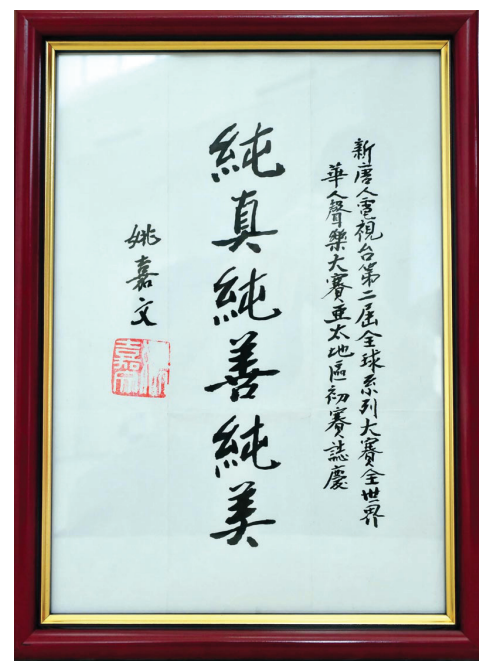 新唐人電視台第二屆全球系列大賽全世界
華人聲樂大賽亞太地區初賽誌慶
純真純善純美
姚嘉文